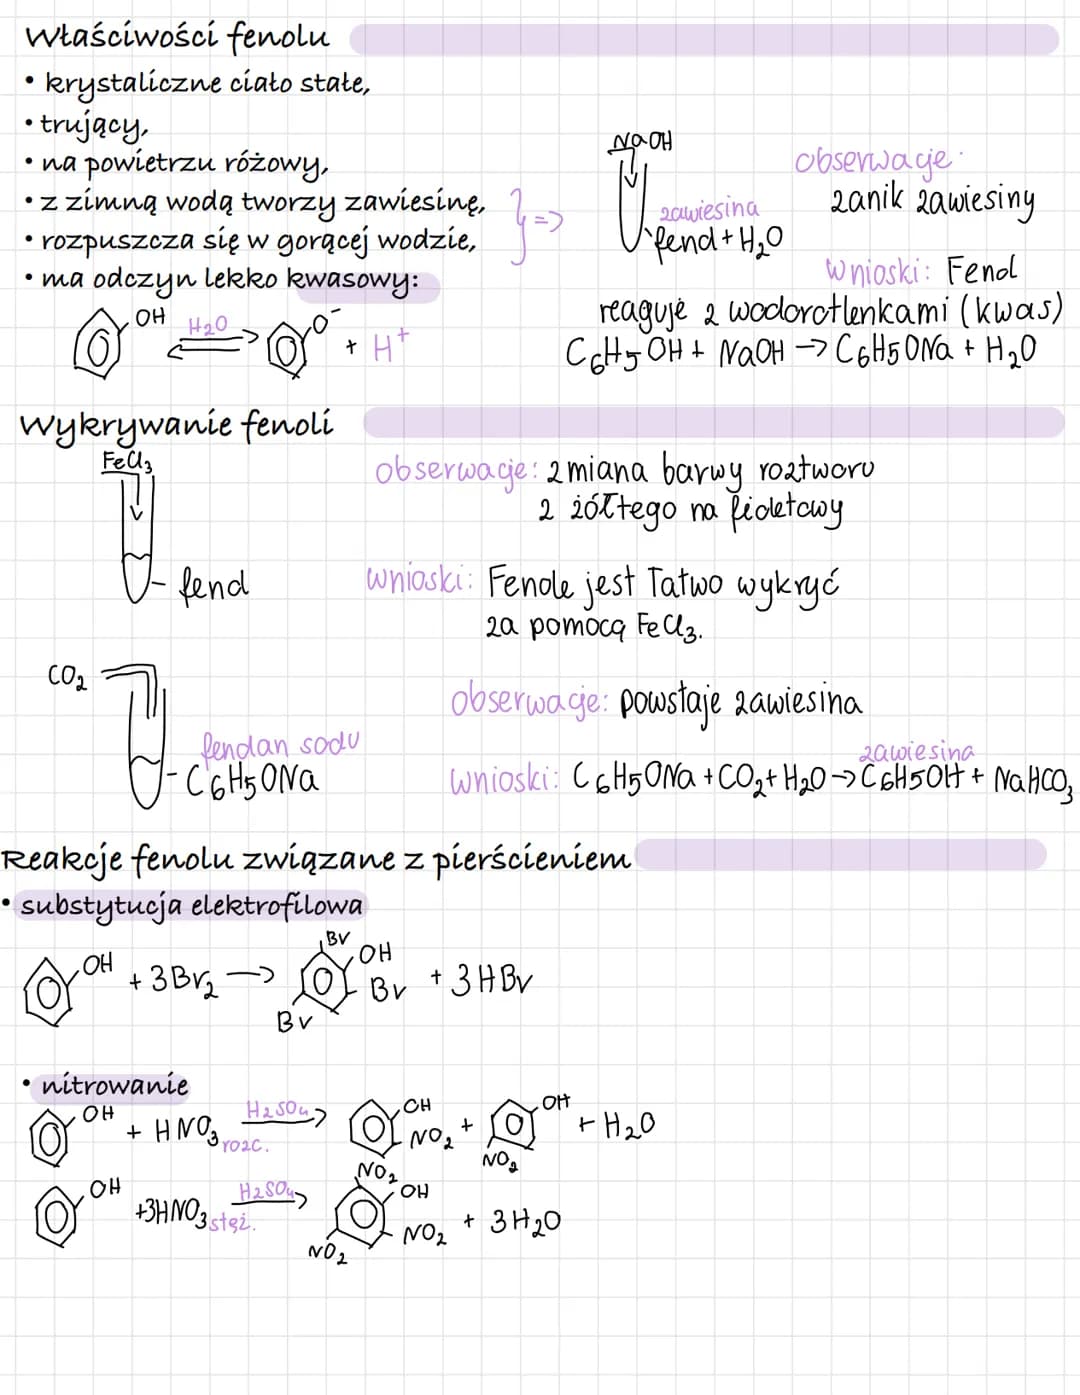 Właściwości fenolu
• krystaliczne ciało stałe,
• trujący,
• na powietrzu różowy,
• z zimną wodą tworzy zawiesinę,
• rozpuszcza się w gorącej wodzie,
• ma odczyn lekko kwasowy:
OH H₂O O⁻ + H⁺
} =>
NaOH
zawiesina
fenol + H₂O
obserwacje:
zanik zawiesiny
wnioski: Fenol
reaguje z wodorotlenkami (kwas)
C₆H₅OH + NaOH → C₆H₅ONa + H₂O
Wykrywanie fenoli
FeCl₃
fenol
obserwacje: zmiana barwy roztworu
z żółtego na fioletowy
wnioski: Fenole jest łatwo wykryć
za pomocą FeCl₃.
CO₂
fenolan sodu
C₆H₅ONa
obserwacje: powstaje zawiesina
zawiesina
wnioski: C₆H₅ONa + CO₂ + H₂O → C₆H₅OH + NaHCO₃
Reakcje fenolu związane z pierścieniem
• substytucja elektrofilowa
OH + 3Br₂ → Br OH Br Br + 3HBr
• nitrowanie
OH + HNO₃ rozc. H₂SO₄ → OH NO₂ + OH NO₂ + H₂O
OH +3HNO₃ stęż. H₂SO₄ → NO₂ OH NO₂ NO₂ + 3H₂O